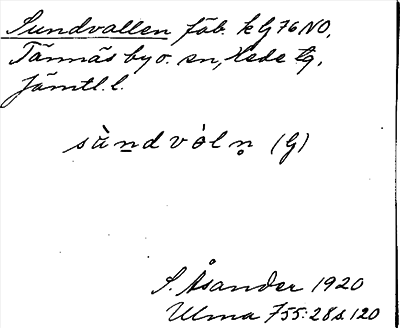 Sundvallen fäb. k G 76 NO,
Tännäs by o. sn, Hede tg,
Jämtl. l.
sùndvòln̥ (G)
S. Åsander 1920
Ulma 755:28 s. 120